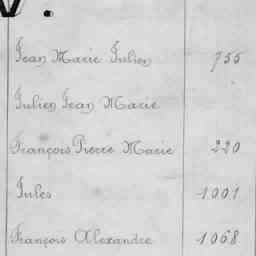 V.
Jean Marie Julien 755
Julien Jean Marie
François Pierre Marie 220
Jules 1001
François Alexandre 1068